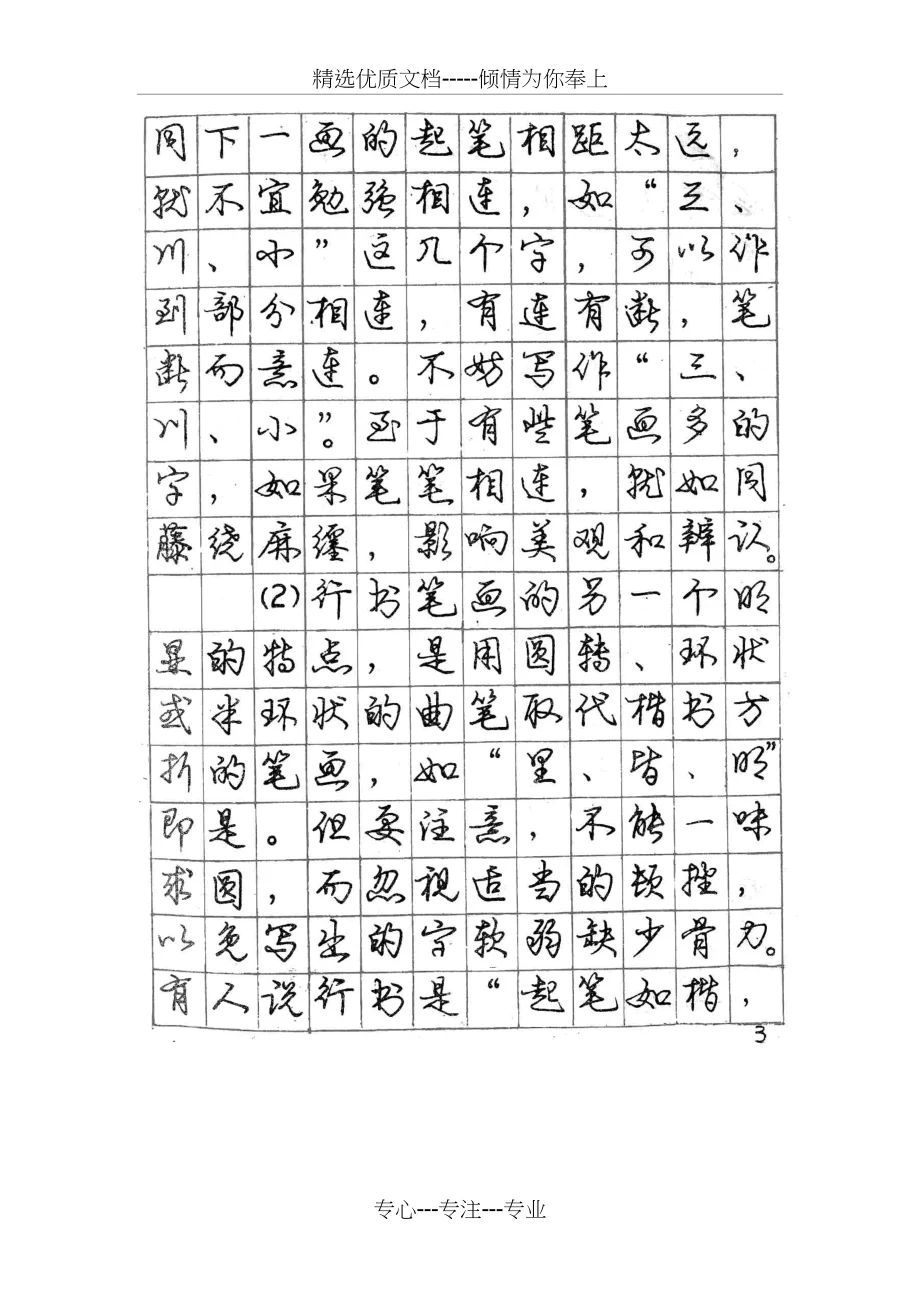 精选优质文档-----倾情为你奉上
同下一画的起笔相距太远，
就不宜勉强相连，如“三、
川、小”这几个字，可以作
到部分相连，有连有断，笔
断而意连。不妨写作“三、
川、小”。至于有些笔画多的
字，如果笔笔相连，就如同
藤绕麻缠，影响美观和辨认。
(2)行书笔画的另一个明
显的特点，是用圆转、环状
或半环状的曲笔取代楷书方
折的笔画，如“里、皆、明”
即是。但要注意，不能一味
求圆，而忽视适当的顿挫，
以免写出的字软弱缺少骨力。
有人说行书是“起笔如楷，
3
专心---专注---专业